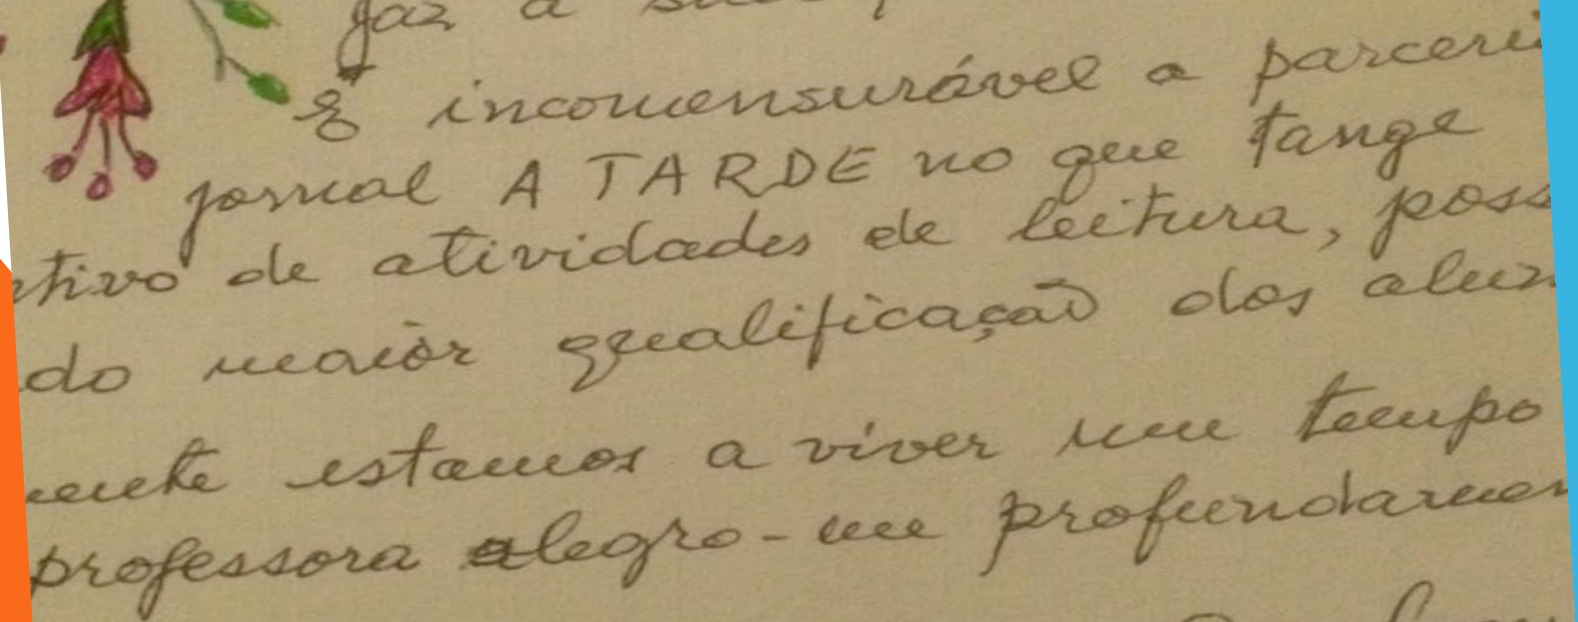 faz a
É incomensurável a parceri
jornal A TARDE no que tange
tivo de atividades de leitura, poss
do maior qualificação dos alun
mente estamos a viver um tempo
professora alegro-me profundamen